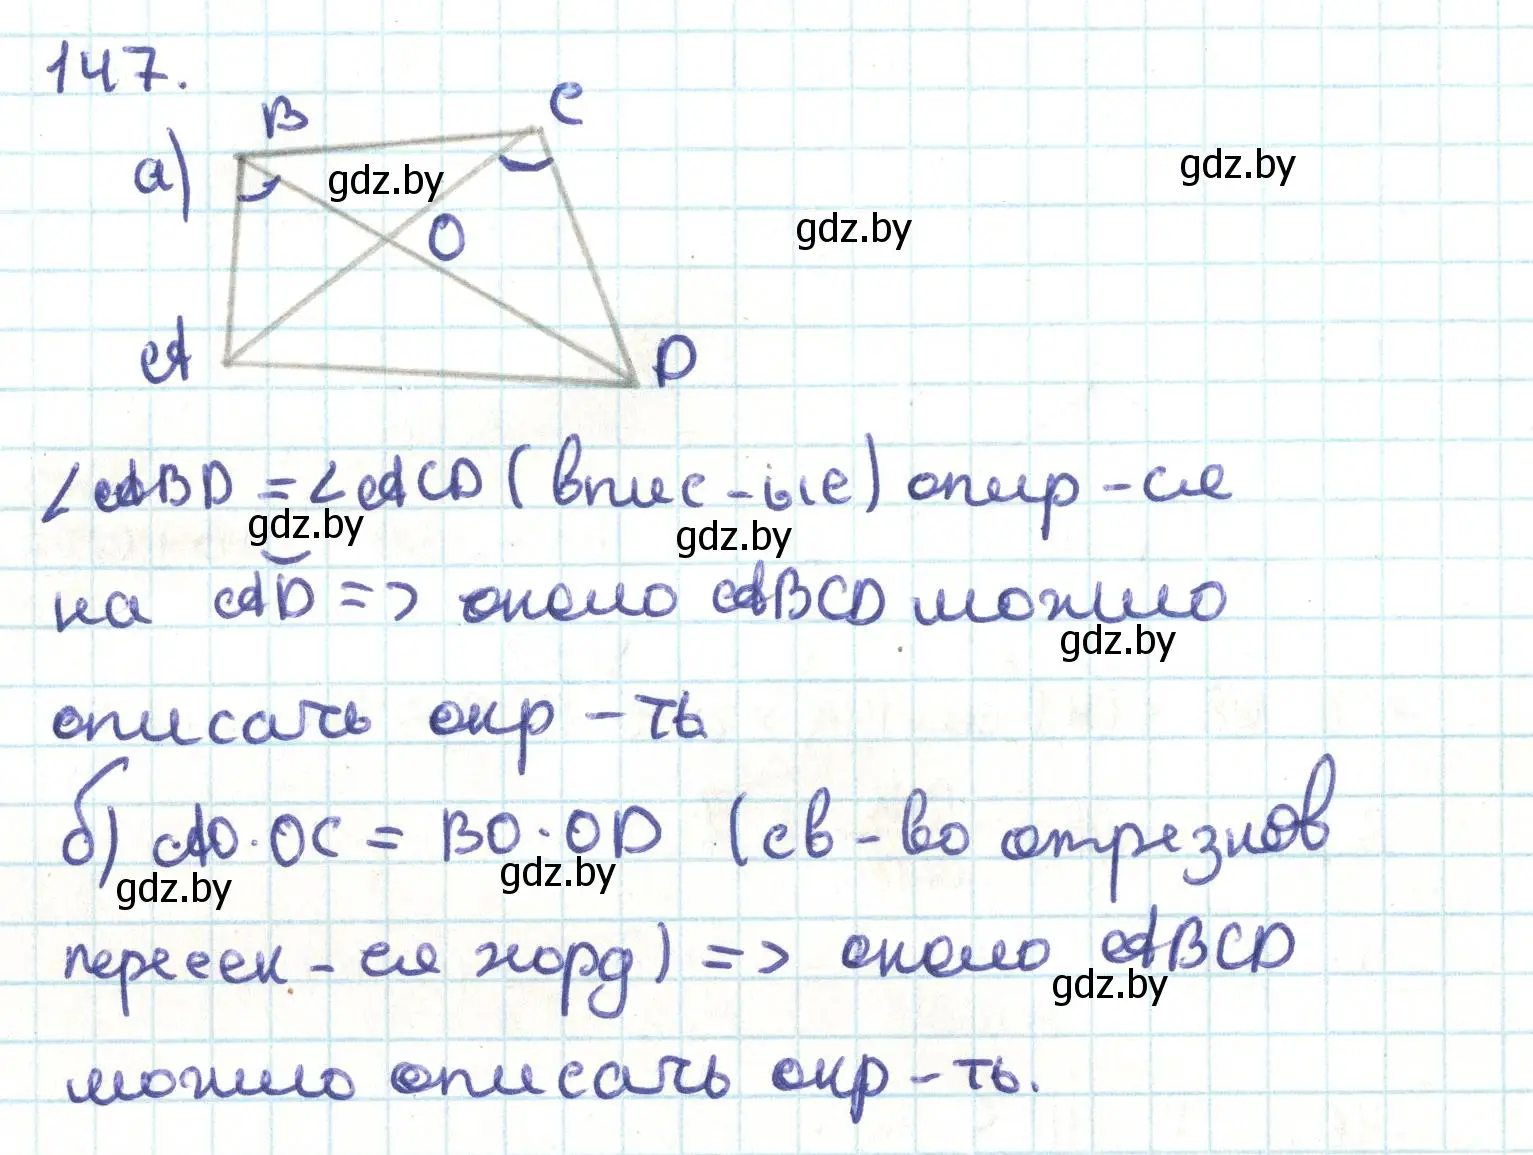 147.
B
C
а)
gdz.by
gdz.by
gdz.by
O
A
D
∠ABD = ∠ACD (впис-ые) опир-ся
gdz.by
gdz.by
на AD => около ABCD можно
gdz.by
описать окр-ть
б) AO·OC = BO·OD (св-во отрезков
gdz.by
gdz.by
пересек-ся хорд) => около ABCD
gdz.by
можно описать окр-ть.